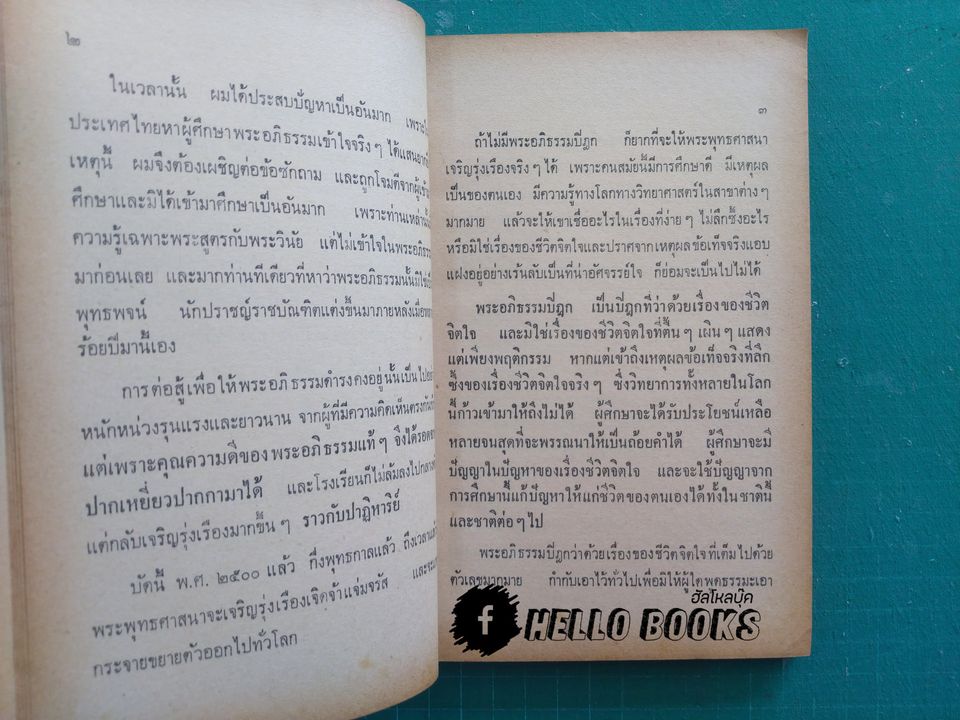 ๒
ในเวลานั้น ผมได้ประสบปัญหาเป็นอันมาก
ประเทศไทยหาผู้ศึกษาพระอภิธรรมเข้าใจจริง ๆ ได้แสน
เหตุนี้ ผมจึงต้องเผชิญต่อข้อซักถาม และถูกโจมตีจาก
ศึกษาและมิได้เข้ามาศึกษาเป็นอันมาก เพราะท่านเหล่า
ความรู้เฉพาะพระสูตรกับพระวินัย แต่ไม่เข้าใจในพระอภิธรรม
มาก่อนเลย และมากท่านทีเดียวที่หาว่าพระอภิธรรมนั้นมิใช่
พุทธพจน์ นักปราชญ์ราชบัณฑิตแต่งขึ้นมาภายหลังเมื่อ
ร้อยปีมานี้เอง
การต่อสู้เพื่อให้พระอภิธรรมดำรงคงอยู่นั้นเป็นไป
หนักหน่วงรุนแรงและยาวนาน จากผู้ที่มีความคิดเห็นตรงกัน
แต่เพราะคุณความดีของพระอภิธรรมแท้ ๆ จึงได้รอด
ปากเหยี่ยวปากกามาได้ และโรงเรียนก็ไม่ล้มลงไป
แต่กลับเจริญรุ่งเรืองมากขึ้น ๆ ราวกับปาฏิหาริย์
บัดนี้ พ.ศ. ๒๕๐๐ แล้ว กึ่งพุทธกาลแล้ว ถึงเวลา
พระพุทธศาสนาจะเจริญรุ่งเรืองเจิดจ้าแจ่มจรัส
กระจายขยายตัวออกไปทั่วโลก
๓
ถ้าไม่มีพระอภิธรรมปิฎก ก็ยากที่จะให้พระพุทธศาสนา
เจริญรุ่งเรืองจริง ๆ ได้ เพราะคนสมัยนี้มีการศึกษาดี มีเหตุผล
เป็นของตนเอง มีความรู้ทางโลกทางวิทยาศาสตร์ในสาขาต่าง ๆ
มากมาย แล้วจะให้เขาเชื่ออะไรในเรื่องที่ง่าย ๆ ไม่ลึกซึ้งอะไร
หรือมิใช่เรื่องของชีวิตจิตใจและปราศจากเหตุผลข้อเท็จจริงแอบ
แฝงอยู่อย่างเร้นลับเป็นที่น่าอัศจรรย์ใจ ก็ย่อมจะเป็นไปไม่ได้
พระอภิธรรมปิฎก เป็นปิฎกที่ว่าด้วยเรื่องของชีวิต
จิตใจ และมิใช่เรื่องของชีวิตจิตใจที่ตื้น ๆ เผิน ๆ แสดง
แต่เพียงพฤติกรรม หากแต่เข้าถึงเหตุผลข้อเท็จจริงที่ลึก
ซึ้งของเรื่องชีวิตจิตใจจริง ๆ ซึ่งวิทยาการทั้งหลายในโลก
นี้ก้าวเข้ามาให้ถึงไม่ได้ ผู้ศึกษาจะได้รับประโยชน์เหลือ
หลายจนสุดที่จะพรรณนาให้เป็นถ้อยคำได้ ผู้ศึกษาจะมี
ปัญญาในปัญหาของเรื่องชีวิตจิตใจ และจะใช้ปัญญาจาก
การศึกษานี้แก้ปัญหาให้แก่ชีวิตของตนเองได้ทั้งในชาตินี้
และชาติต่อ ๆ ไป
พระอภิธรรมปิฎกว่าด้วยเรื่องของชีวิตจิตใจที่เต็มไปด้วย
ตัวเลขมากมาย กำกับเอาไว้ทั่วไปเพื่อมิให้ผู้ใดพูดธรรมะเอา
ฮัลโหลบุ๊ค
f HELLO BOOKS